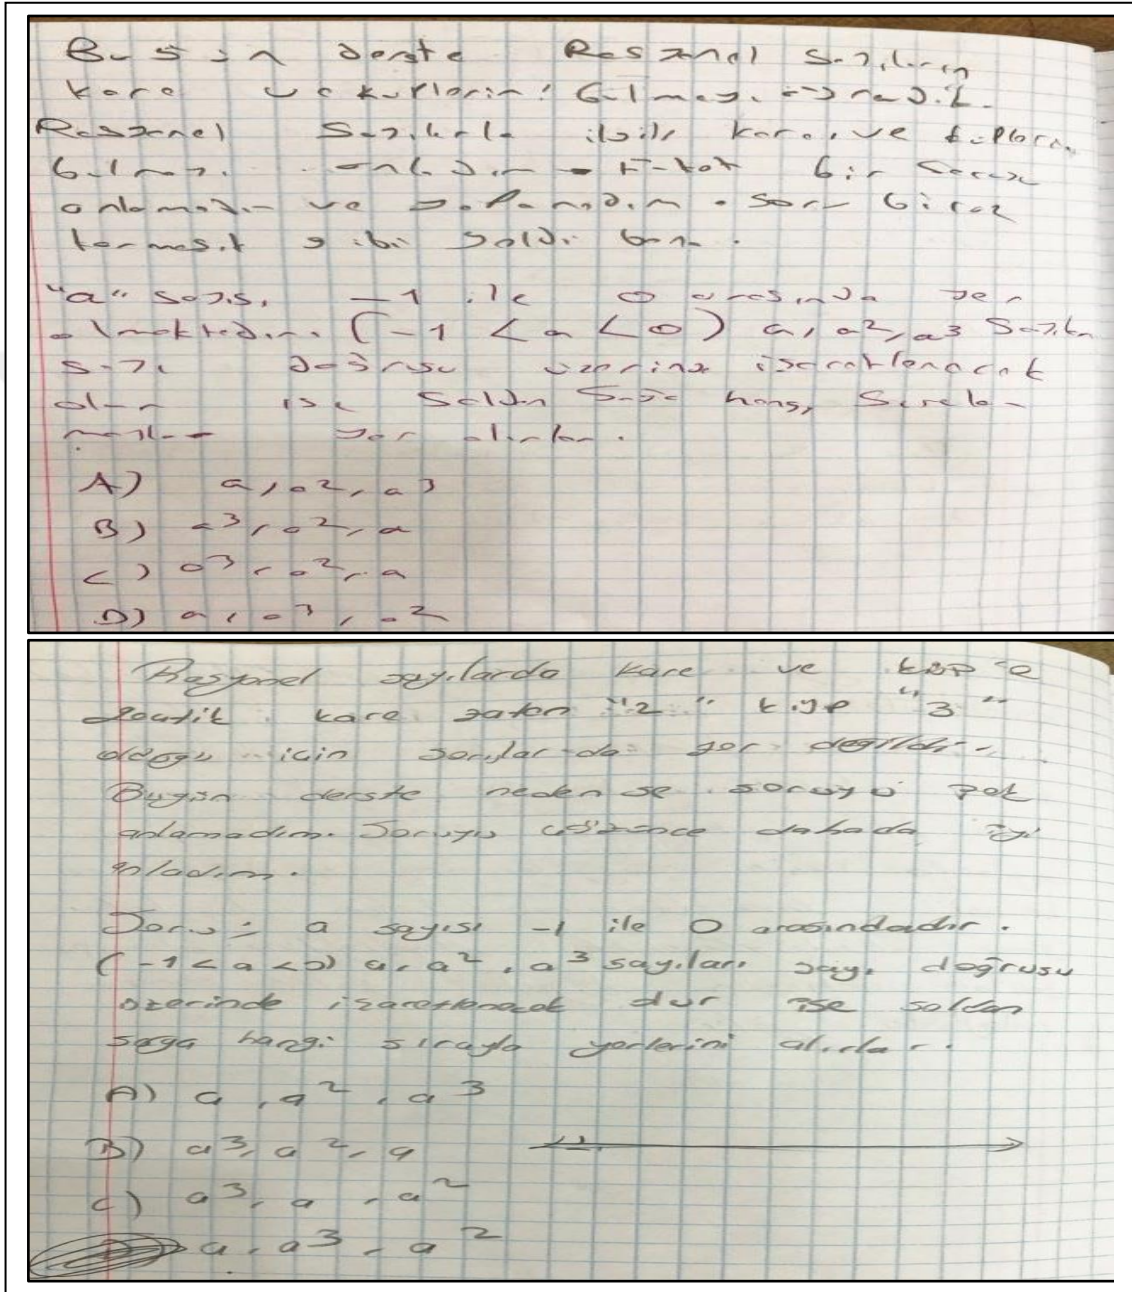 Bugün derste Rasyonel Sayıların
kare ve küplerini bulmayı öğrendik.
Rasyonel Sayılarla ilgili kare ve küplerini
bulmayı anladım. Fakat bir soruyu
anlamadım ve yapamadım. Soru biraz
karmaşık gibi geldi bana.
"a" sayısı, -1 ile 0 arasında yer
almaktadır. (-1 < a < 0) a, a², a³ Sayıları
sayı doğrusu üzerine işaretlenecek
olur ise Soldan Sağa hangi
yer alırlar.
A) a, a², a³
B) a³, a², a
C) a³, a², a
D) a, a³, a²
Rasyonel sayılarda kare ve küp e
kare zaten "2" küpe "3"
için sorular da zor değildi
Bugün derste nedense soruyu pek
anlamadım. Soruyu çözünce dahada iyi
anladım.
Soru: a sayısı -1 ile 0 arasındadır.
(-1 < a < 0) a, a², a³ sayıları sayı doğrusu
üzerinde işaretlenecek olur ise soldan
sağa hangi sırayla yerlerini alırlar.
A) a, a², a³
B) a³, a², a
C) a³, a, a²
a, a³, a²